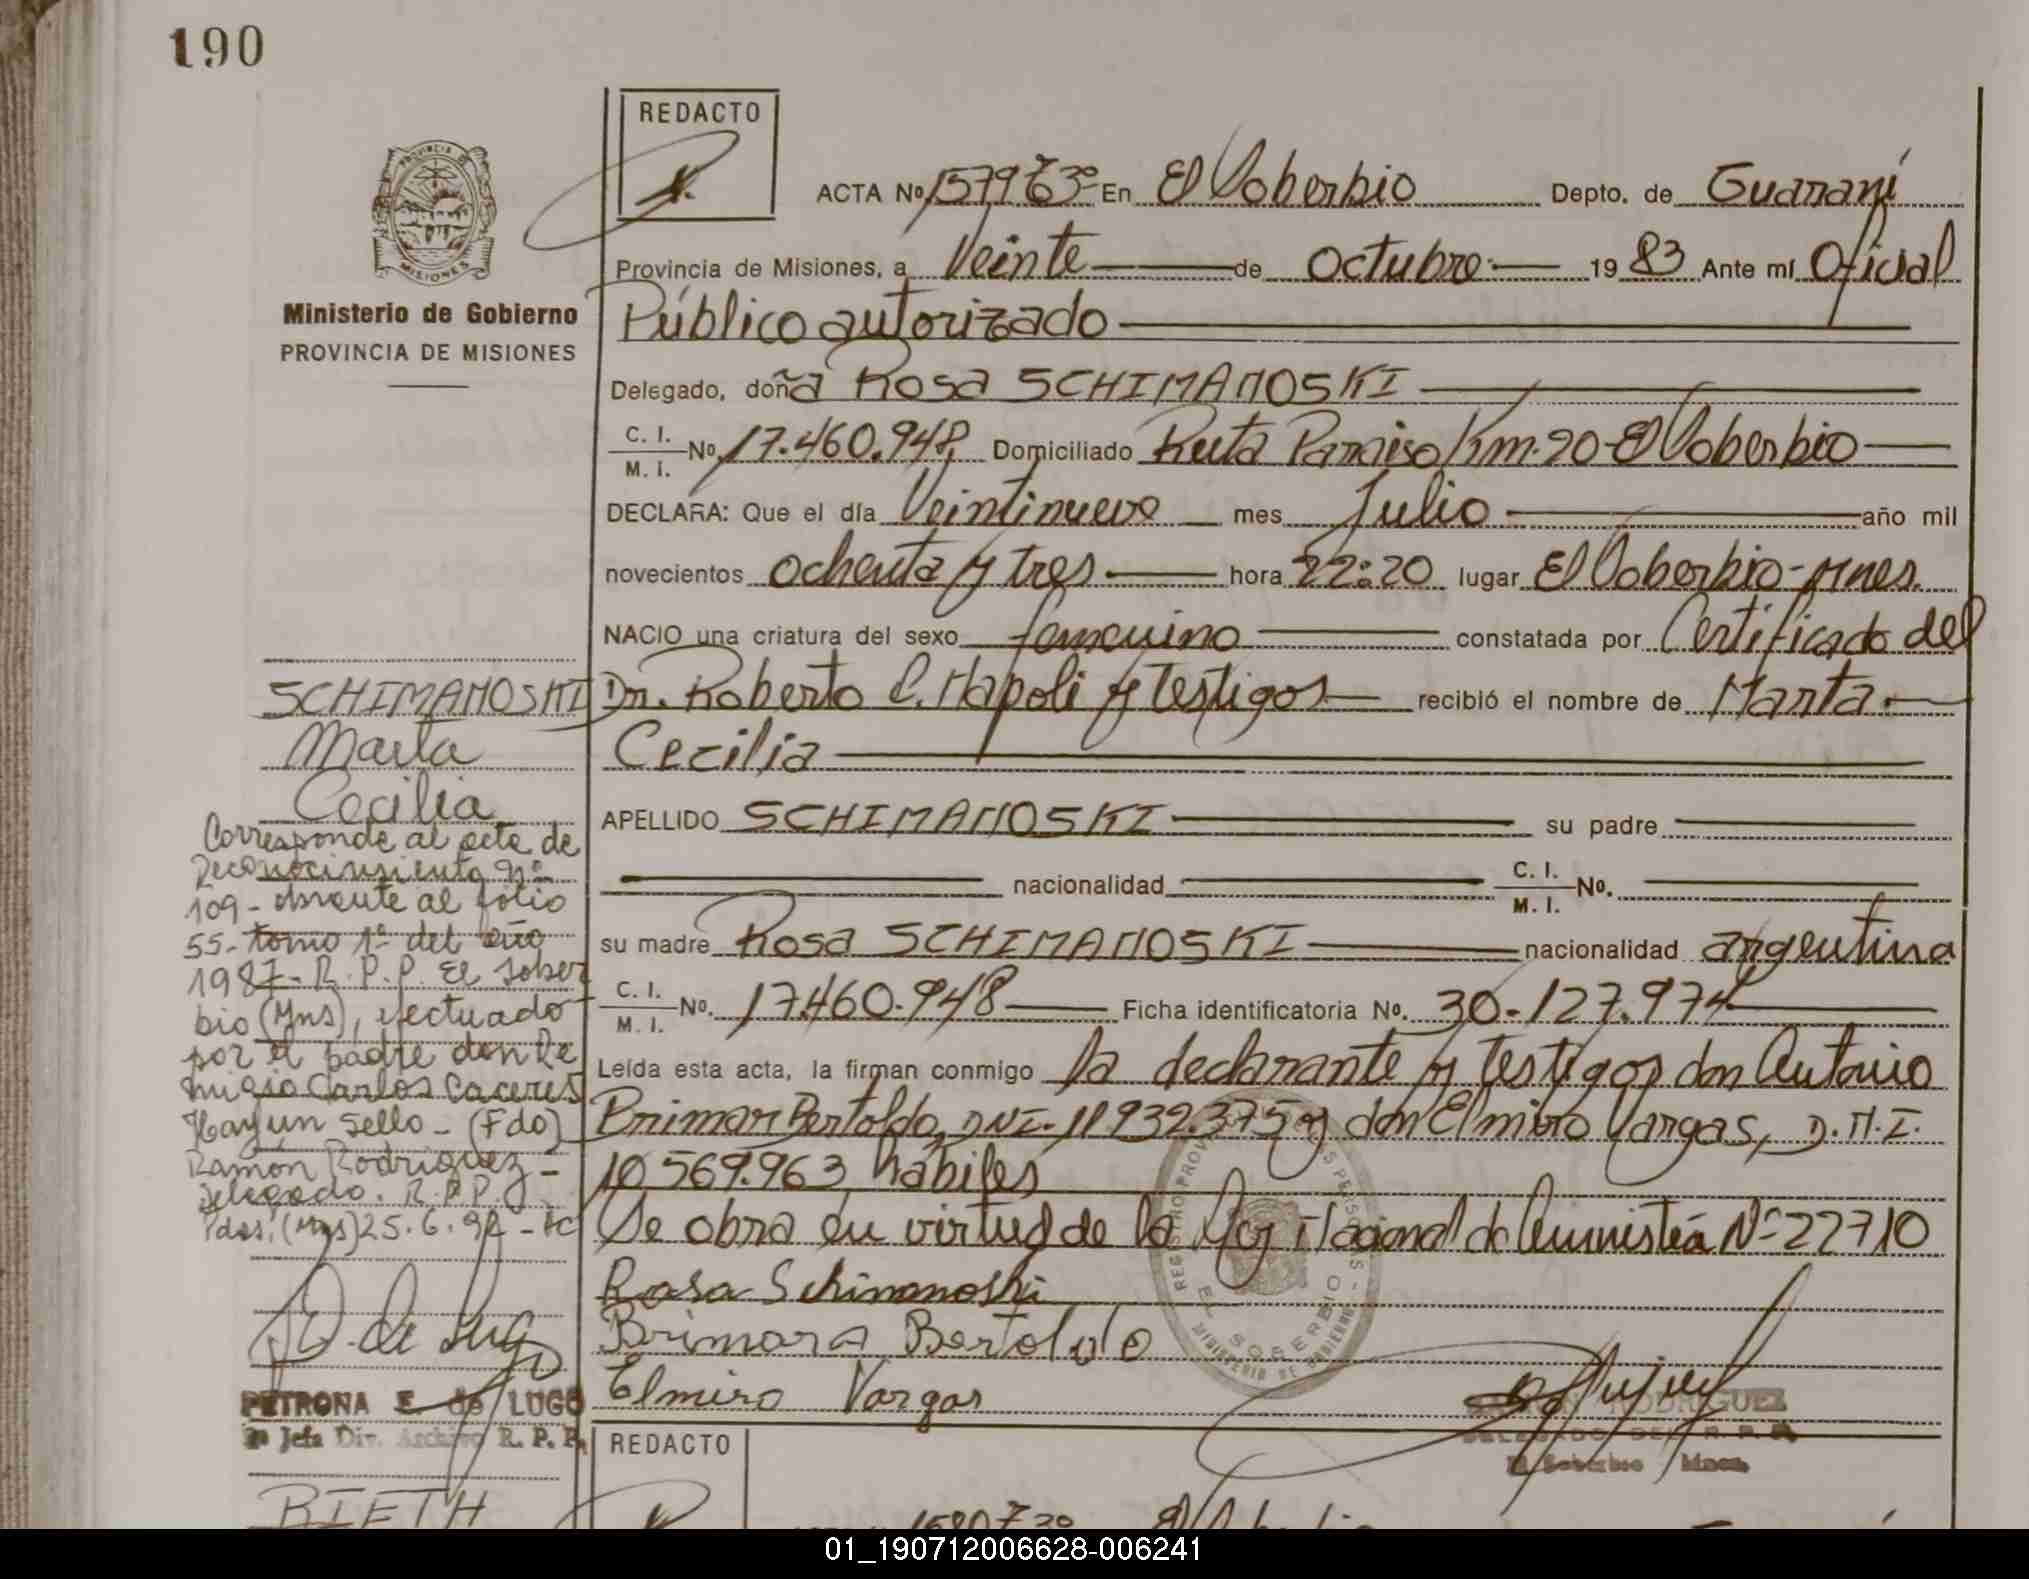 190
REDACTO
ACTA Nº 1579 Tº 3º En El Soberbio Depto. de Guaraní
Provincia de Misiones, a Veinte de Octubre 19 83 Ante mí Oficial
Público autorizado
Delegado, doña Rosa SCHIMANOSKI
C. I.
M. I. Nº 17.460.948, Domiciliado Ruta Paraiso Km. 20-El Soberbio
DECLARA: Que el día Veintinueve mes Julio año mil
novecientos ochenta y tres hora 22:20 lugar El Soberbio-Mnes.
NACIO una criatura del sexo femenino constatada por Certificado del
Dr. Roberto C. Napoli y testigos recibió el nombre de Marta
Cecilia
APELLIDO SCHIMANOSKI su padre
nacionalidad C. I.
M. I. Nº.
su madre Rosa SCHIMANOSKI nacionalidad argentina
C. I.
M. I. Nº. 17.460.948 Ficha identificatoria Nº. 30.127.974
Leída esta acta, la firman conmigo la declarante y testigos don Antonio
Brimar Bertoldo, DNI. 11.932.375 y don Elmiro Vargas, D.N.I.
10.569.963, habiles
Se obra en virtud de la Ley Nacional de Amnistia Nº 22710
Rosa Schimanoski
Brimara Bertoldo
Elmiro Vargas
RAMON RODRIGUEZ
DELEGADO DEL R. P. P.
El Soberbio Mnes.
EL SOBERBIO
MINISTERIO DE GOBIERNO
PROVINCIA DE
MISIONES
Ministerio de Gobierno
PROVINCIA DE MISIONES
SCHIMANOSKI
Marta
Cecilia
Corresponde al acta de
Reconocimiento Nº
109- obrante al folio
55- tomo 1º del año
1987- R. P. P. El Sober
bio (Mns), efectuado
por el padre don Re
migio Carlos Caceres
Hay un sello - (Fdo)
Ramón Rodriguez -
delegado. R.P.P.
Pdas. (Mns) 25.6.92
PETRONA E. de LUGO
Jefa Div. Archivo R. P. P.
BIETH
REDACTO
01_190712006628-006241